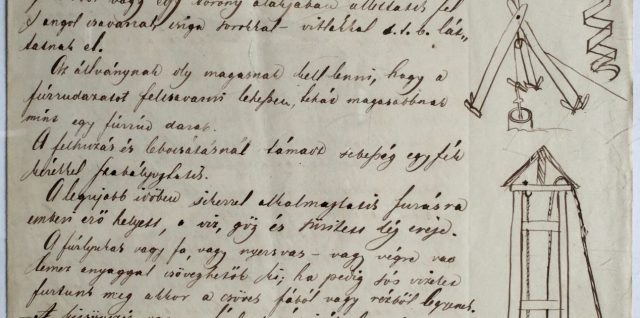 vagy egy torony alakjában állíttatik fel
s angol csavarral csiga sorokkal - vitlákkal s.t.b. lát-
tatnak el.
Az állványnak oly magasnak kell lenni, hogy a
fúrrudazatot felcsavarni lehessen, tehát magasabbnak
mint egy fúrrúd darab.
A felhuzás és lebocsátásnál támadt sebesség egy fék
kerékkel szabályoztatik.
A legujabb időben sikerrel alkalmaztatik furásra
emberi erő helyett, a víz, gőz és sűrített lég ereje.
A fúrlyukas vagy fa, vagy nyersvas - vagy végre vas
lemez anyaggal csöveghetők ki; ha pedig sós vizeket
furtunk meg akkor a csöves fából vagy rézből legyenek.